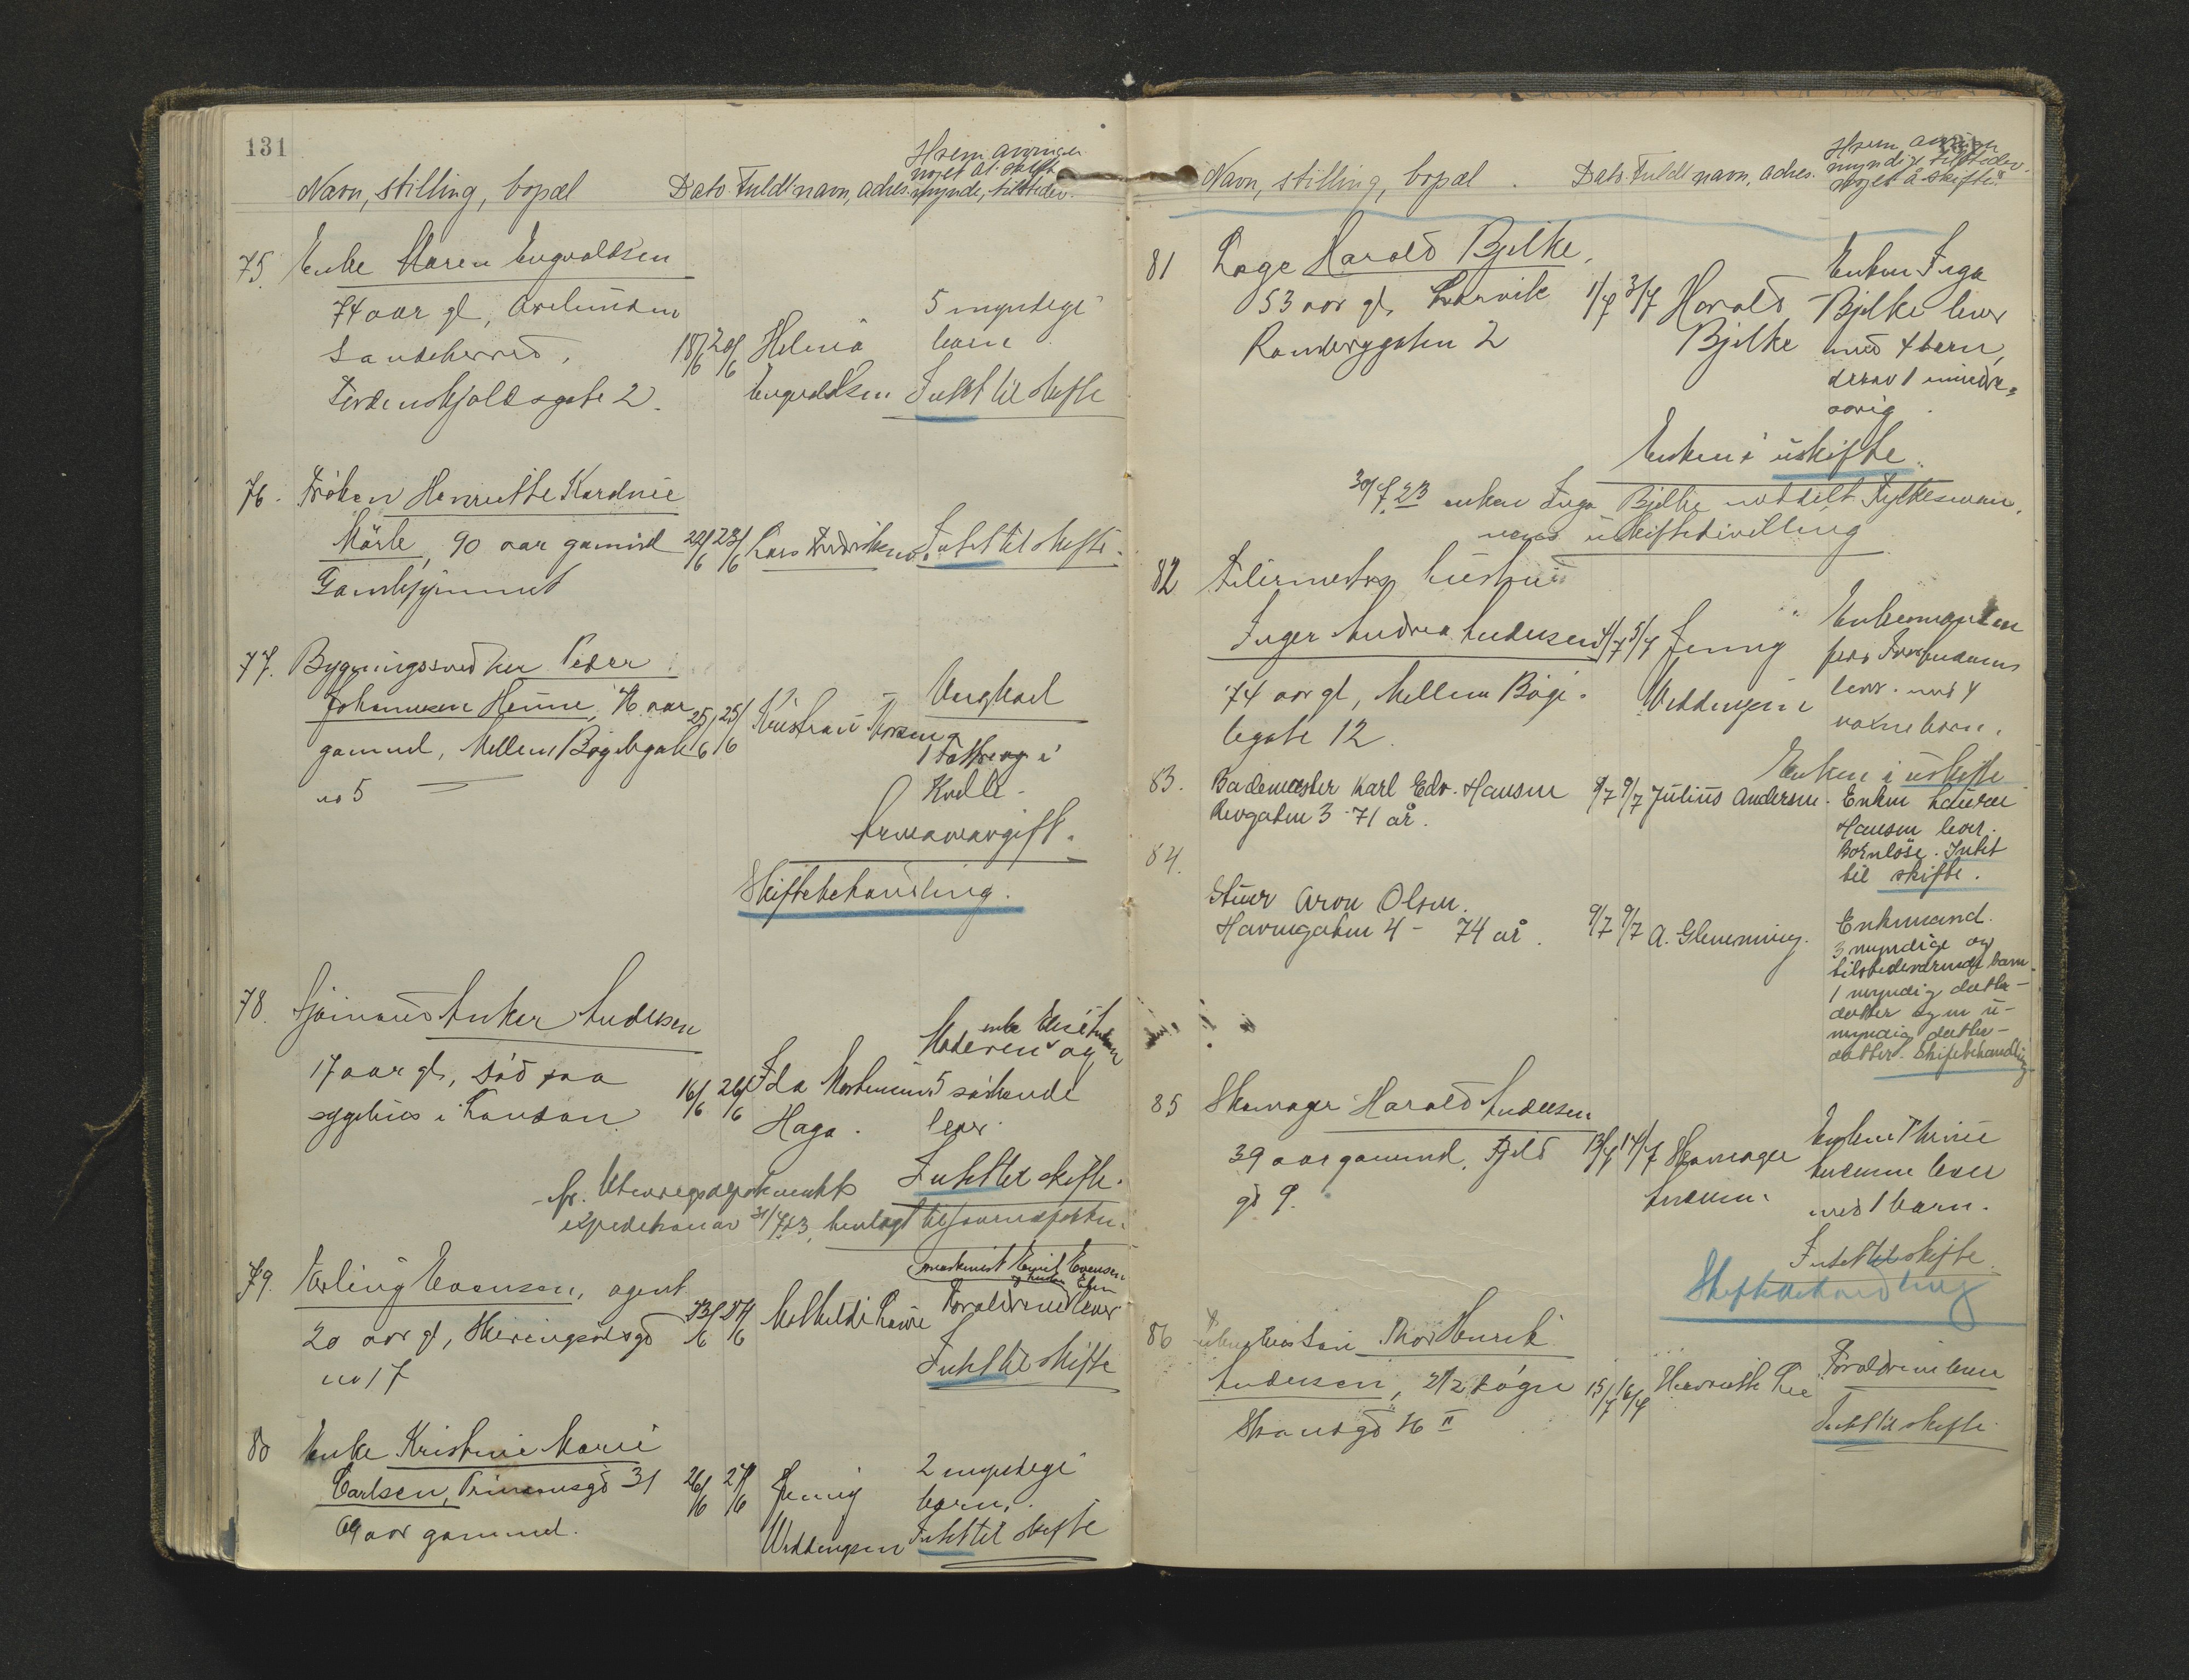 131
Navn, stilling, bopæl Dato Fuldt navn, adres.
noget at skifte
mynde, tilstedev.
75. Enke Maren Engvaldsen
74 aar gl,
Sandeherred,
Tordenskjoldsgate 2.
18/6 20/6 Helena
Engvaldsen
5 myndige
barn
Intet til skifte
76. Frøken Henriette Kardine
Mørle, 90 aar gammel
Gamlehjemmet
22/6 23/6 Lars Fredriksen
Intet til skifte.
77. Bygningssnedker Peder
Johannesen Heime, 76 aar
gammel, Mellem Bøgelegate
no 5
25/6 25/6 Kristian
Ungkarl
1 i
Arveavgift.
Skiftebehandling.
78. Sjømand Anker Andersen
17 aar gl, død paa
sygehus i London
16/6 26/6 Ida Mortensen
Haga.
enke Elise
Moderen og
5 søskende
lever.
Intet til skifte.
fr. Utenriksdepartementets
expedition av 31/7 23, henlagt til
79. Erling Evensen, agent
20 aar gl,
no 17
23/6 27/6 Mathilde
maskinist Emil Evensen
og hustru
Forældrene lever
Intet til skifte
80 Enke Kristine Marie
Carlsen, Prinsensgd 31
69 aar gammel.
26/6 27/6 Jenny
Weddingen
2 myndige
barn.
Intet til skifte
Navn, stilling, bopæl. Dato. Fuldt navn, adres.
myndige tilstedev.
noget å skifte?
81 Loge Harald Bjelke,
53 aar gl, Larvik
gaten 2
1/7 3/7 Harald
Bjelke
Enken Inga
Bjelke lever
med 4 barn,
derav 1 mindre-
aarig.
Enken i uskifte.
30/7 23 enken Inga Bjelke meddelt Fylkesman-
nens uskiftebevilling
82 hustru
Inger Andrea Andersen
74 aar gl, Mellem Bøge-
legate 12.
4/7 5/7 Jenny
Weddingen
Enkemanden
lever med 4
voksne barn.
Enken i uskifte
83. Bademester Karl Edv. Hansen
Revgaten 3 - 71 år.
8/7 9/7 Julius Andersen.
Enken Laura
Hansen lever.
Barnløse. Intet
til skifte.
84.
Stuer Aron Olsen.
Havnegaten 4 - 74 år.
9/7 9/7 A. Glenning.
Enkemand.
3 myndige og
tilstedeværende barn.
1 myndig datter-
datter og en u-
myndig datter-
datter. Skiftebehandling
85 Skomager Harald Andersen
39 aar gammel, Fjeld
gd 9.
13/7 14/7 Skomager
Andersen.
Enken Thrine
Andersen lever
med 1 barn.
Intet til skifte.
Skiftebehandling
86 Thor Henrik
Andersen, 2 1/2 døgn
Strandgd 46 II
15/7 16/7 Henriette Lie
Forældrene lever
Intet til skifte.